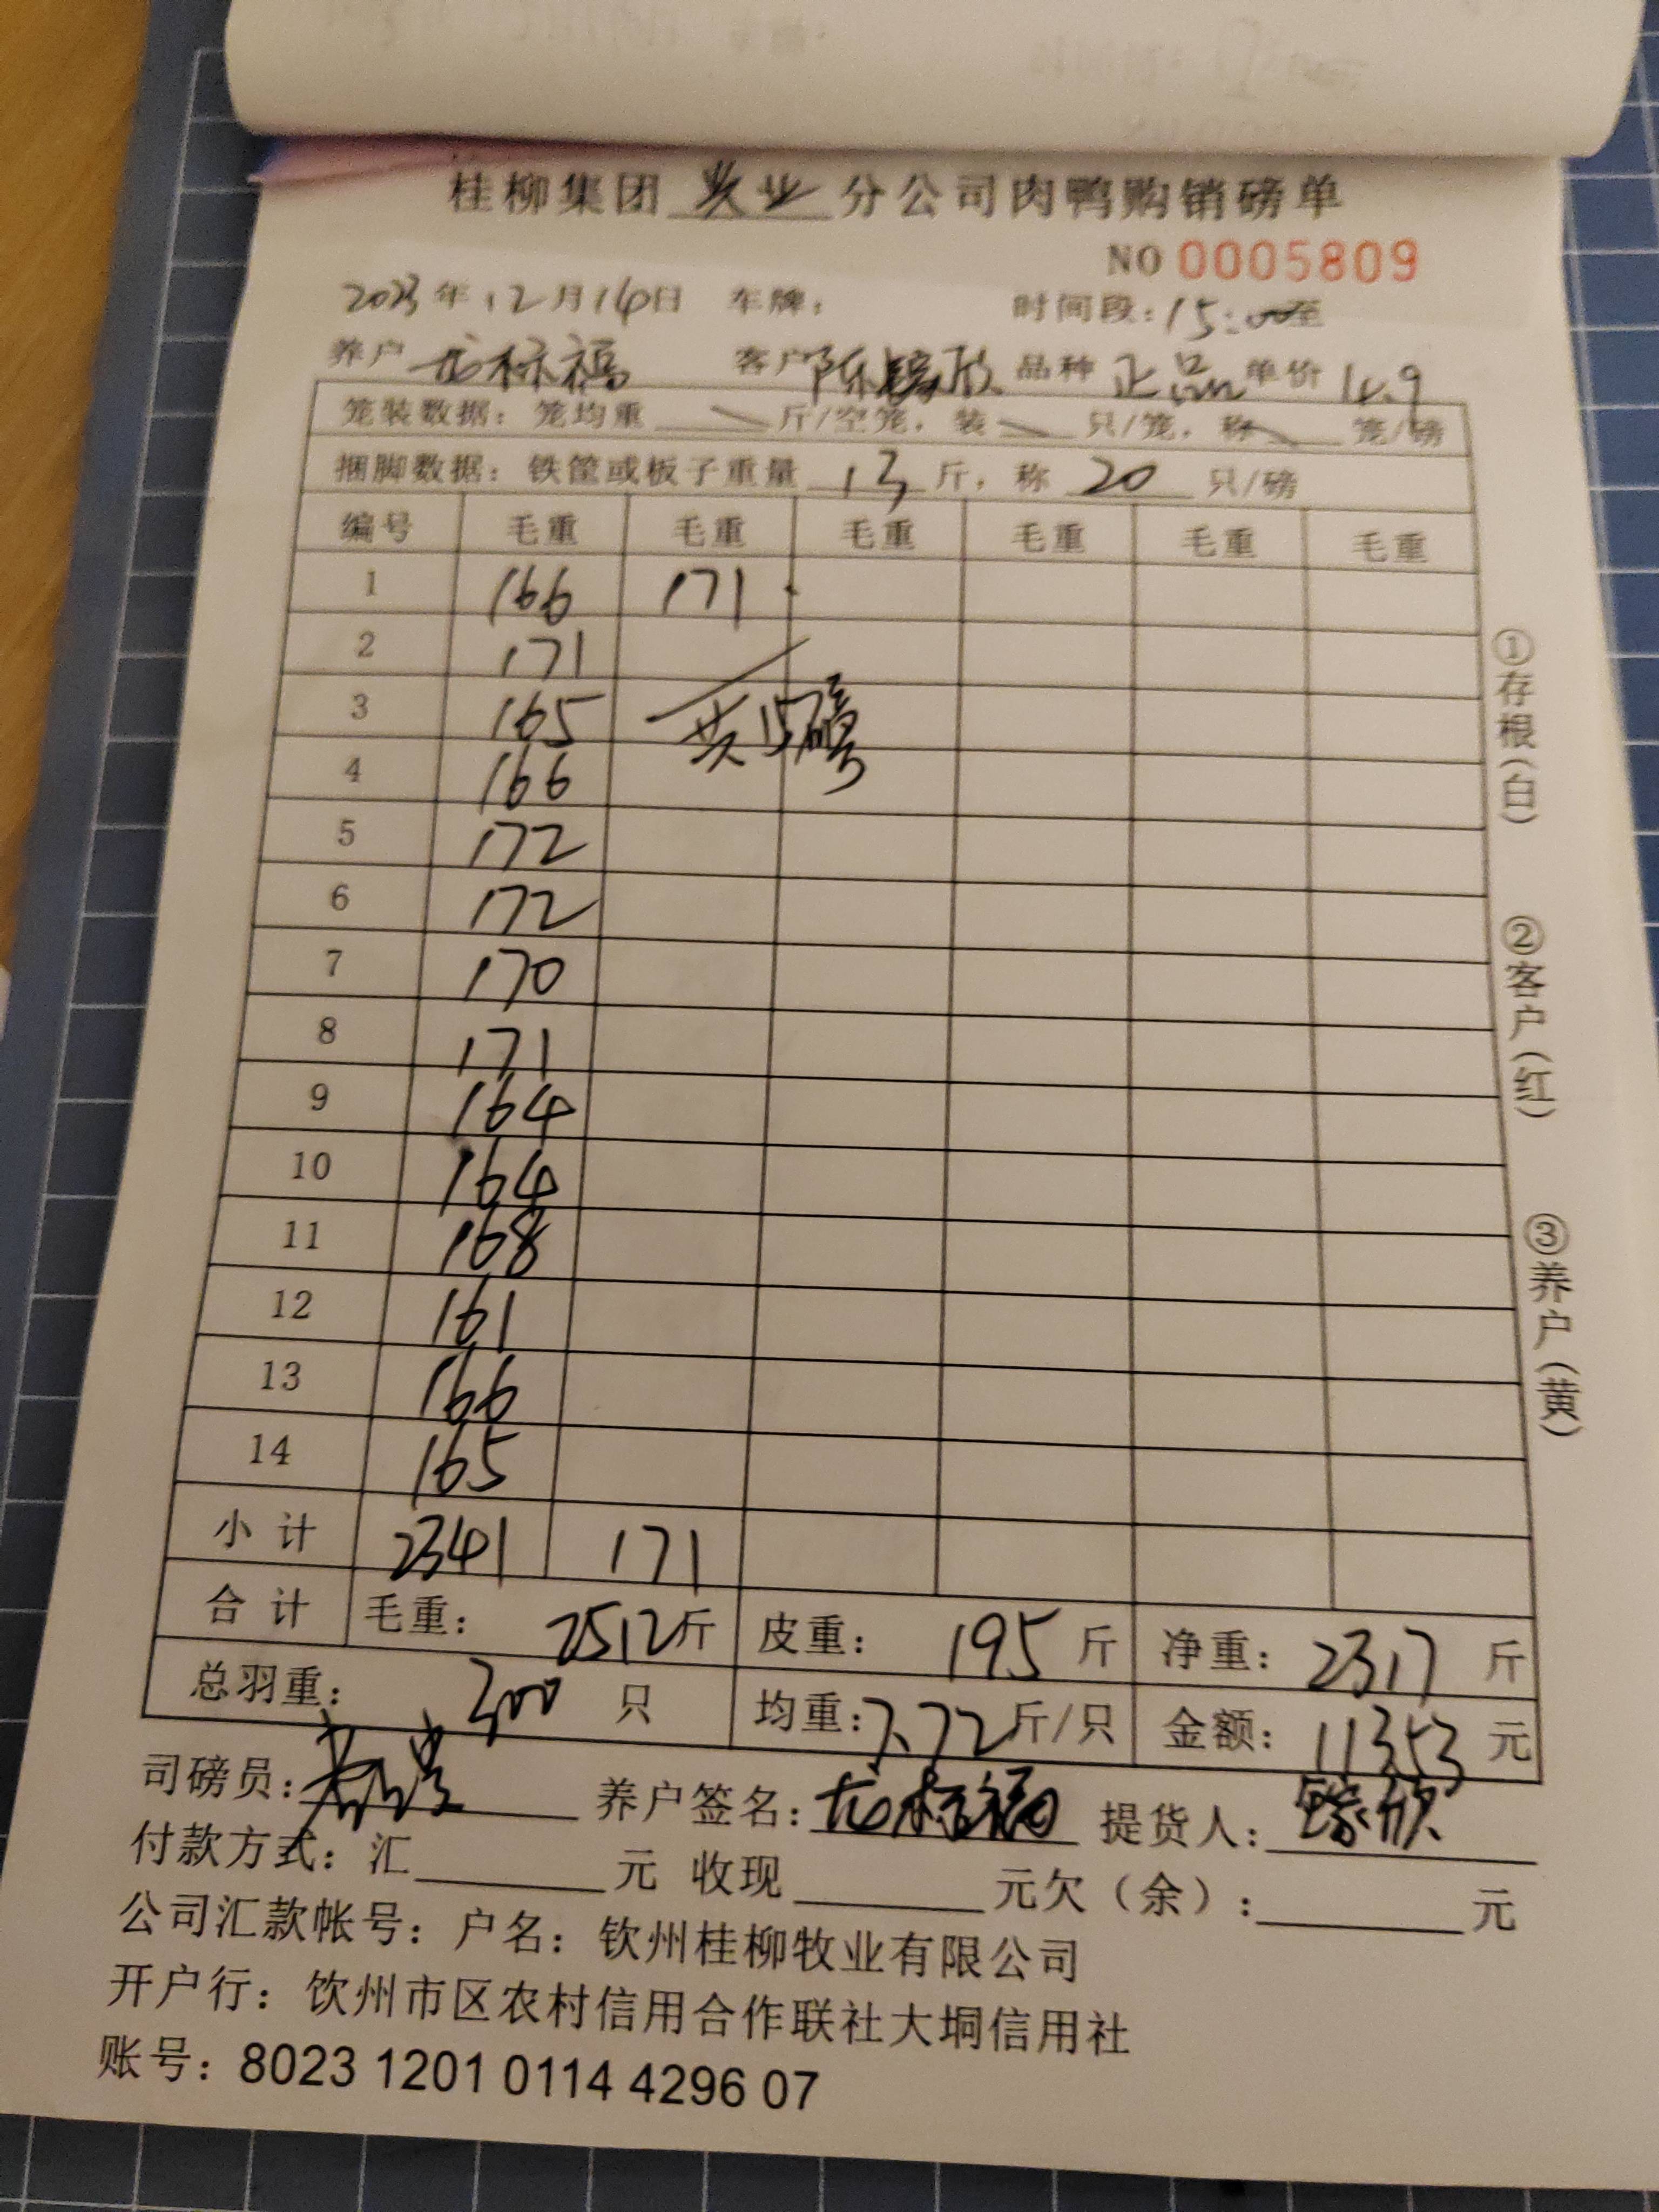 桂柳集团 兴业 分公司肉鸭购销磅单
NO 0005809
2023年12月14日 车牌： 时间段：15:00至
养户 龙标福 客户 陈 欣 品种 正品 单价 4.9
笼装数据：笼均重 斤/空笼，装 只/笼，称 笼/磅
捆脚数据：铁筐或板子重量 13 斤，称 20 只/磅
编号 毛重 毛重 毛重 毛重 毛重 毛重
1 166 171
2 171
3 165 共15磅
4 166
5 172
6 172
7 170
8 171
9 164
10 164
11 168
12 161
13 166
14 165
小计 2341 171
合计 毛重：2512斤 皮重：195斤 净重：2317斤
总羽重：300 只 均重：7.72斤/只 金额：11353元
司磅员： 养户签名：龙标福 提货人： 欣
付款方式：汇 元 收现 元欠（余）： 元
公司汇款帐号：户名：钦州桂柳牧业有限公司
开户行：饮州市区农村信用合作联社大垌信用社
账号：8023 1201 0114 4296 07
①存根（白） ②客户（红） ③养户（黄）